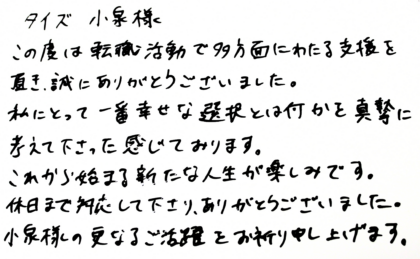 タイズ 小泉様
この度は転職活動で多方面にわたる支援を
頂き、誠にありがとうございました。
私にとって一番幸せな選択とは何かを真摯に
考えて下さった感じております。
これから始まる新たな人生が楽しみです。
休日まで対応して下さり、ありがとうございました。
小泉様の更なるご活躍をお祈り申し上げます。